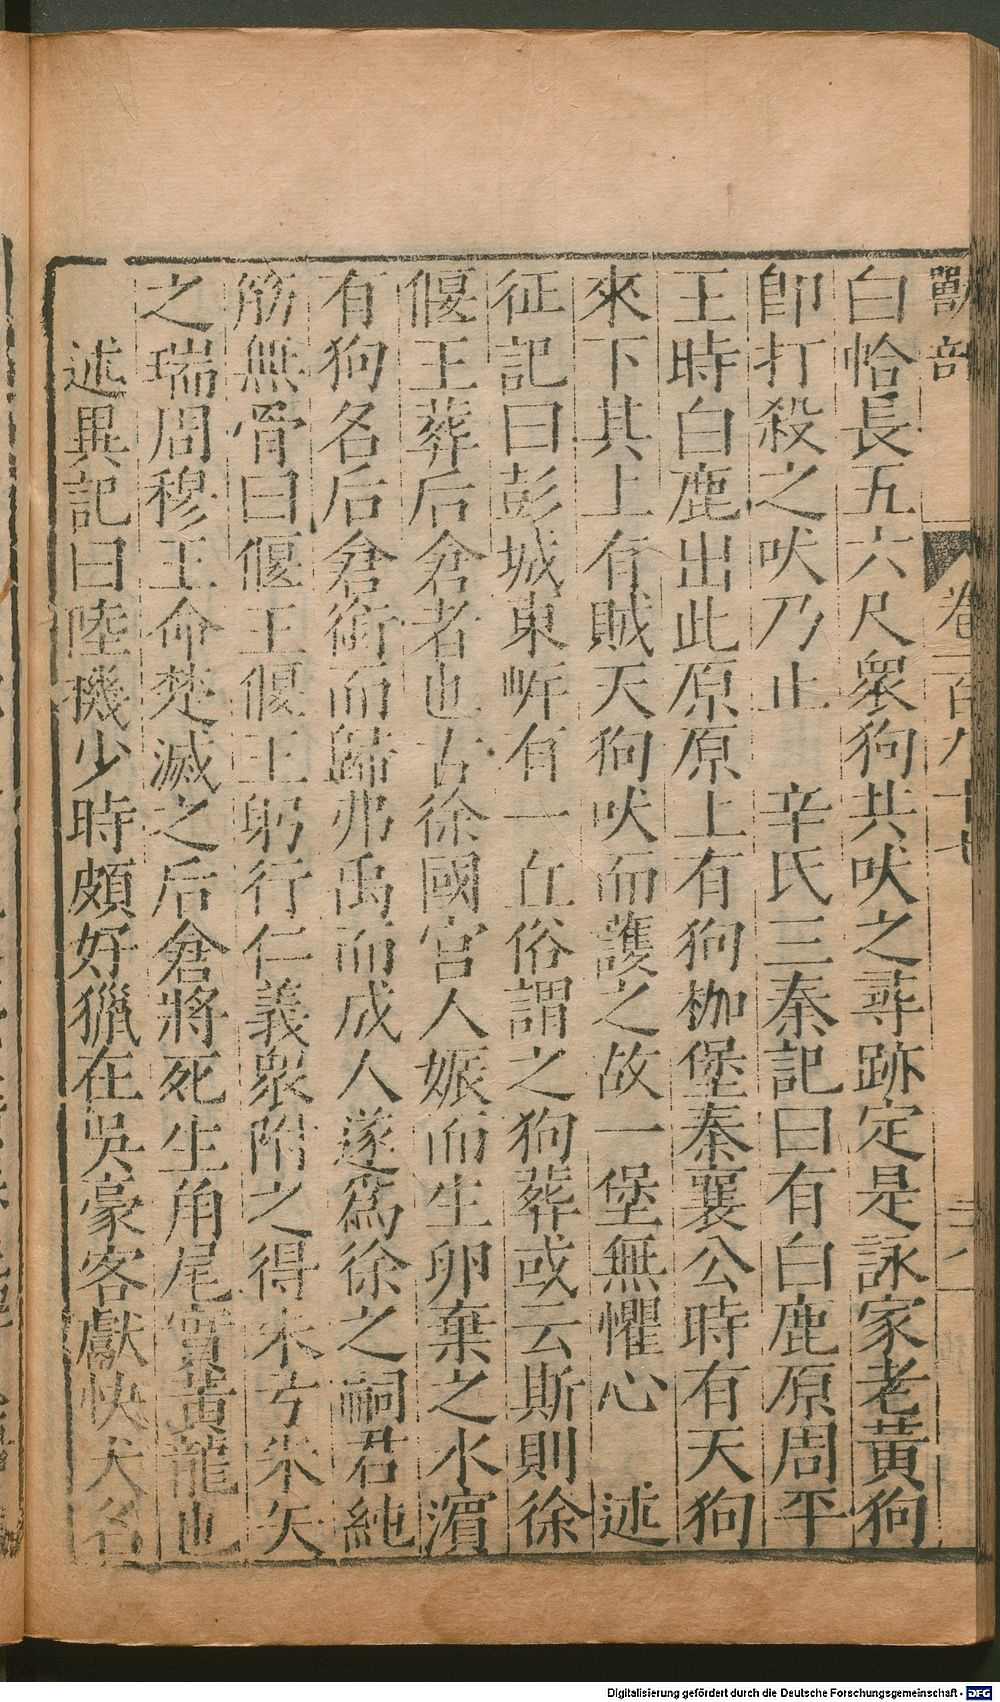 獸部 卷一百八十七 三八
白恰長五六尺衆狗共吠之尋跡定是詠家老黃狗
卽打殺之吠乃止 辛氏三秦記曰有白鹿原周平
王時白鹿出此原原上有狗枷堡秦襄公時有天狗
來下其上有賊天狗吠而護之故一堡無懼心 述
征記曰彭城東岓有一丘俗謂之狗葬或云斯則徐
偃王葬后倉者也古徐國宮人娠而生卵棄之水濵
有狗名后倉銜而歸弗禹而成人遂爲徐之嗣君純
筋無骨曰偃王偃王躬行仁義衆附之得朱弓朱矢
之瑞周穆王命楚滅之后倉將死生角尾實黃龍也
述異記曰陸機少時頗好獵在吳豪客獻快犬名
Digitalisierung gefördert durch die Deutsche Forschungsgemeinschaft - DFG